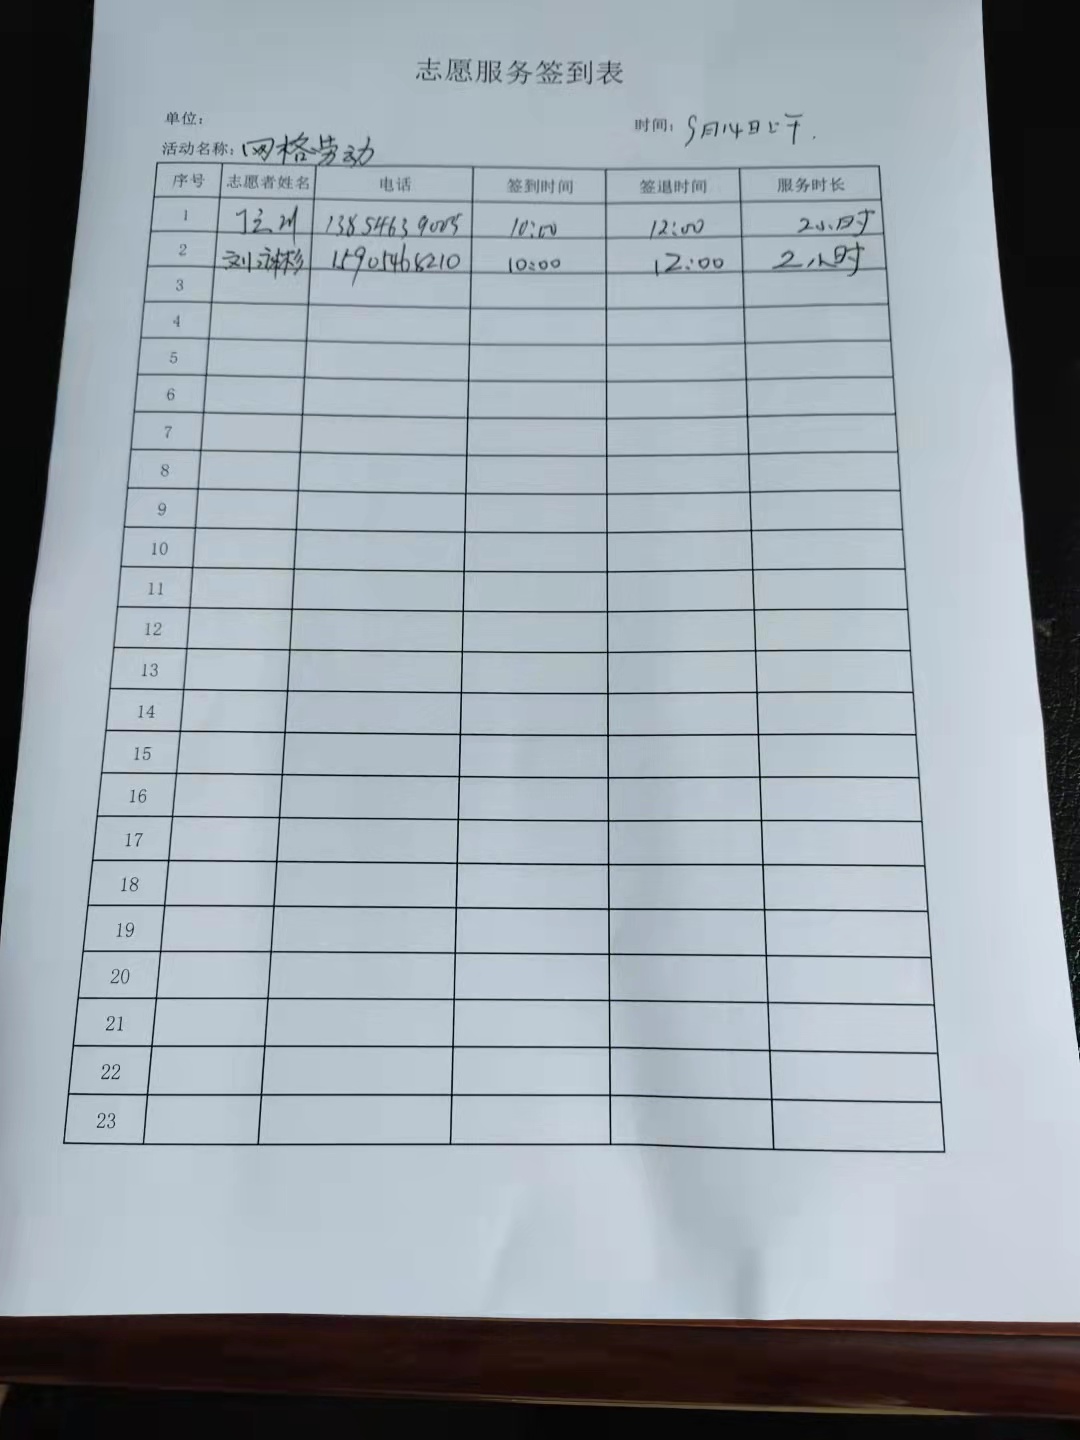 志愿服务签到表
单位：
时间：9月14日上午.
活动名称：网格劳动
序号 志愿者姓名 电话 签到时间 签退时间 服务时长
1 13854639005 10:00 12:00 2小时
2 刘 15905468210 10:00 12:00 2小时
3
4
5
6
7
8
9
10
11
12
13
14
15
16
17
18
19
20
21
22
23